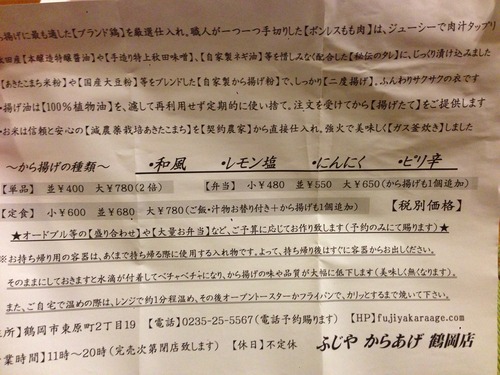 揚げに最も適した【ブランド鶏】を厳選仕入れ。職人が一つ一つ手切りした【ボンレスもも肉】は、ジューシーで肉汁タップリ
太田産【本醸造特醸醤油】や【手造り特上秋田味噌】、【自家製ネギ油】等を惜しみなく配合した【秘伝のタレ】に、じっくり漬け込みました
【あきたこまち米粉】や【国産大豆粉】等をブレンドした【自家製から揚げ粉】で、しっかり【二度揚げ】。ふんわりサクサクの衣です
・揚げ油は【100%植物油】を、濾して再利用せず定期的に使い捨て。注文を受けてから【揚げたて】をご提供します
・お米は信頼と安心の【減農薬栽培あきたこまち】を【契約農家】から直接仕入れ、強火で美味しく【ガス釜炊き】しました
～から揚げの種類～ ・和風 ・レモン塩 ・にんにく ・ピリ辛
【単品】 並¥400 大¥780(2倍) 【弁当】 小¥480 並¥550 大¥650(から揚げも1個追加)
【定食】 小¥600 並¥680 大¥780(ご飯・汁物お替り付き+から揚げも1個追加) 【税別価格】
★オードブル等の【盛り合わせ】や【大量お弁当】など、ご予算に応じてお作り致します(予約のみにて賜ります)★
※お持ち帰り用の容器は、あまで持ち帰る際に使用する入れ物です。よって、持ち帰り後はすぐに容器からお出しください。
そのままにしておきますと水滴が付着してベチャベチャになり、から揚げの味や品質が大幅に低下します(美味しく無くなります)。
また、ご自宅で温めの際は、レンジで約1分程温め、その後オーブントースターかフライパンで、カリッとするまで焼いて下さい。
住所】鶴岡市東原町2丁目19 【電話】0235-25-5567(電話予約賜ります) 【HP】fujiyakaraage.com
業時間】11時～20時(完売次第閉店致します) 【休日】不定休 ふじや からあげ 鶴岡店